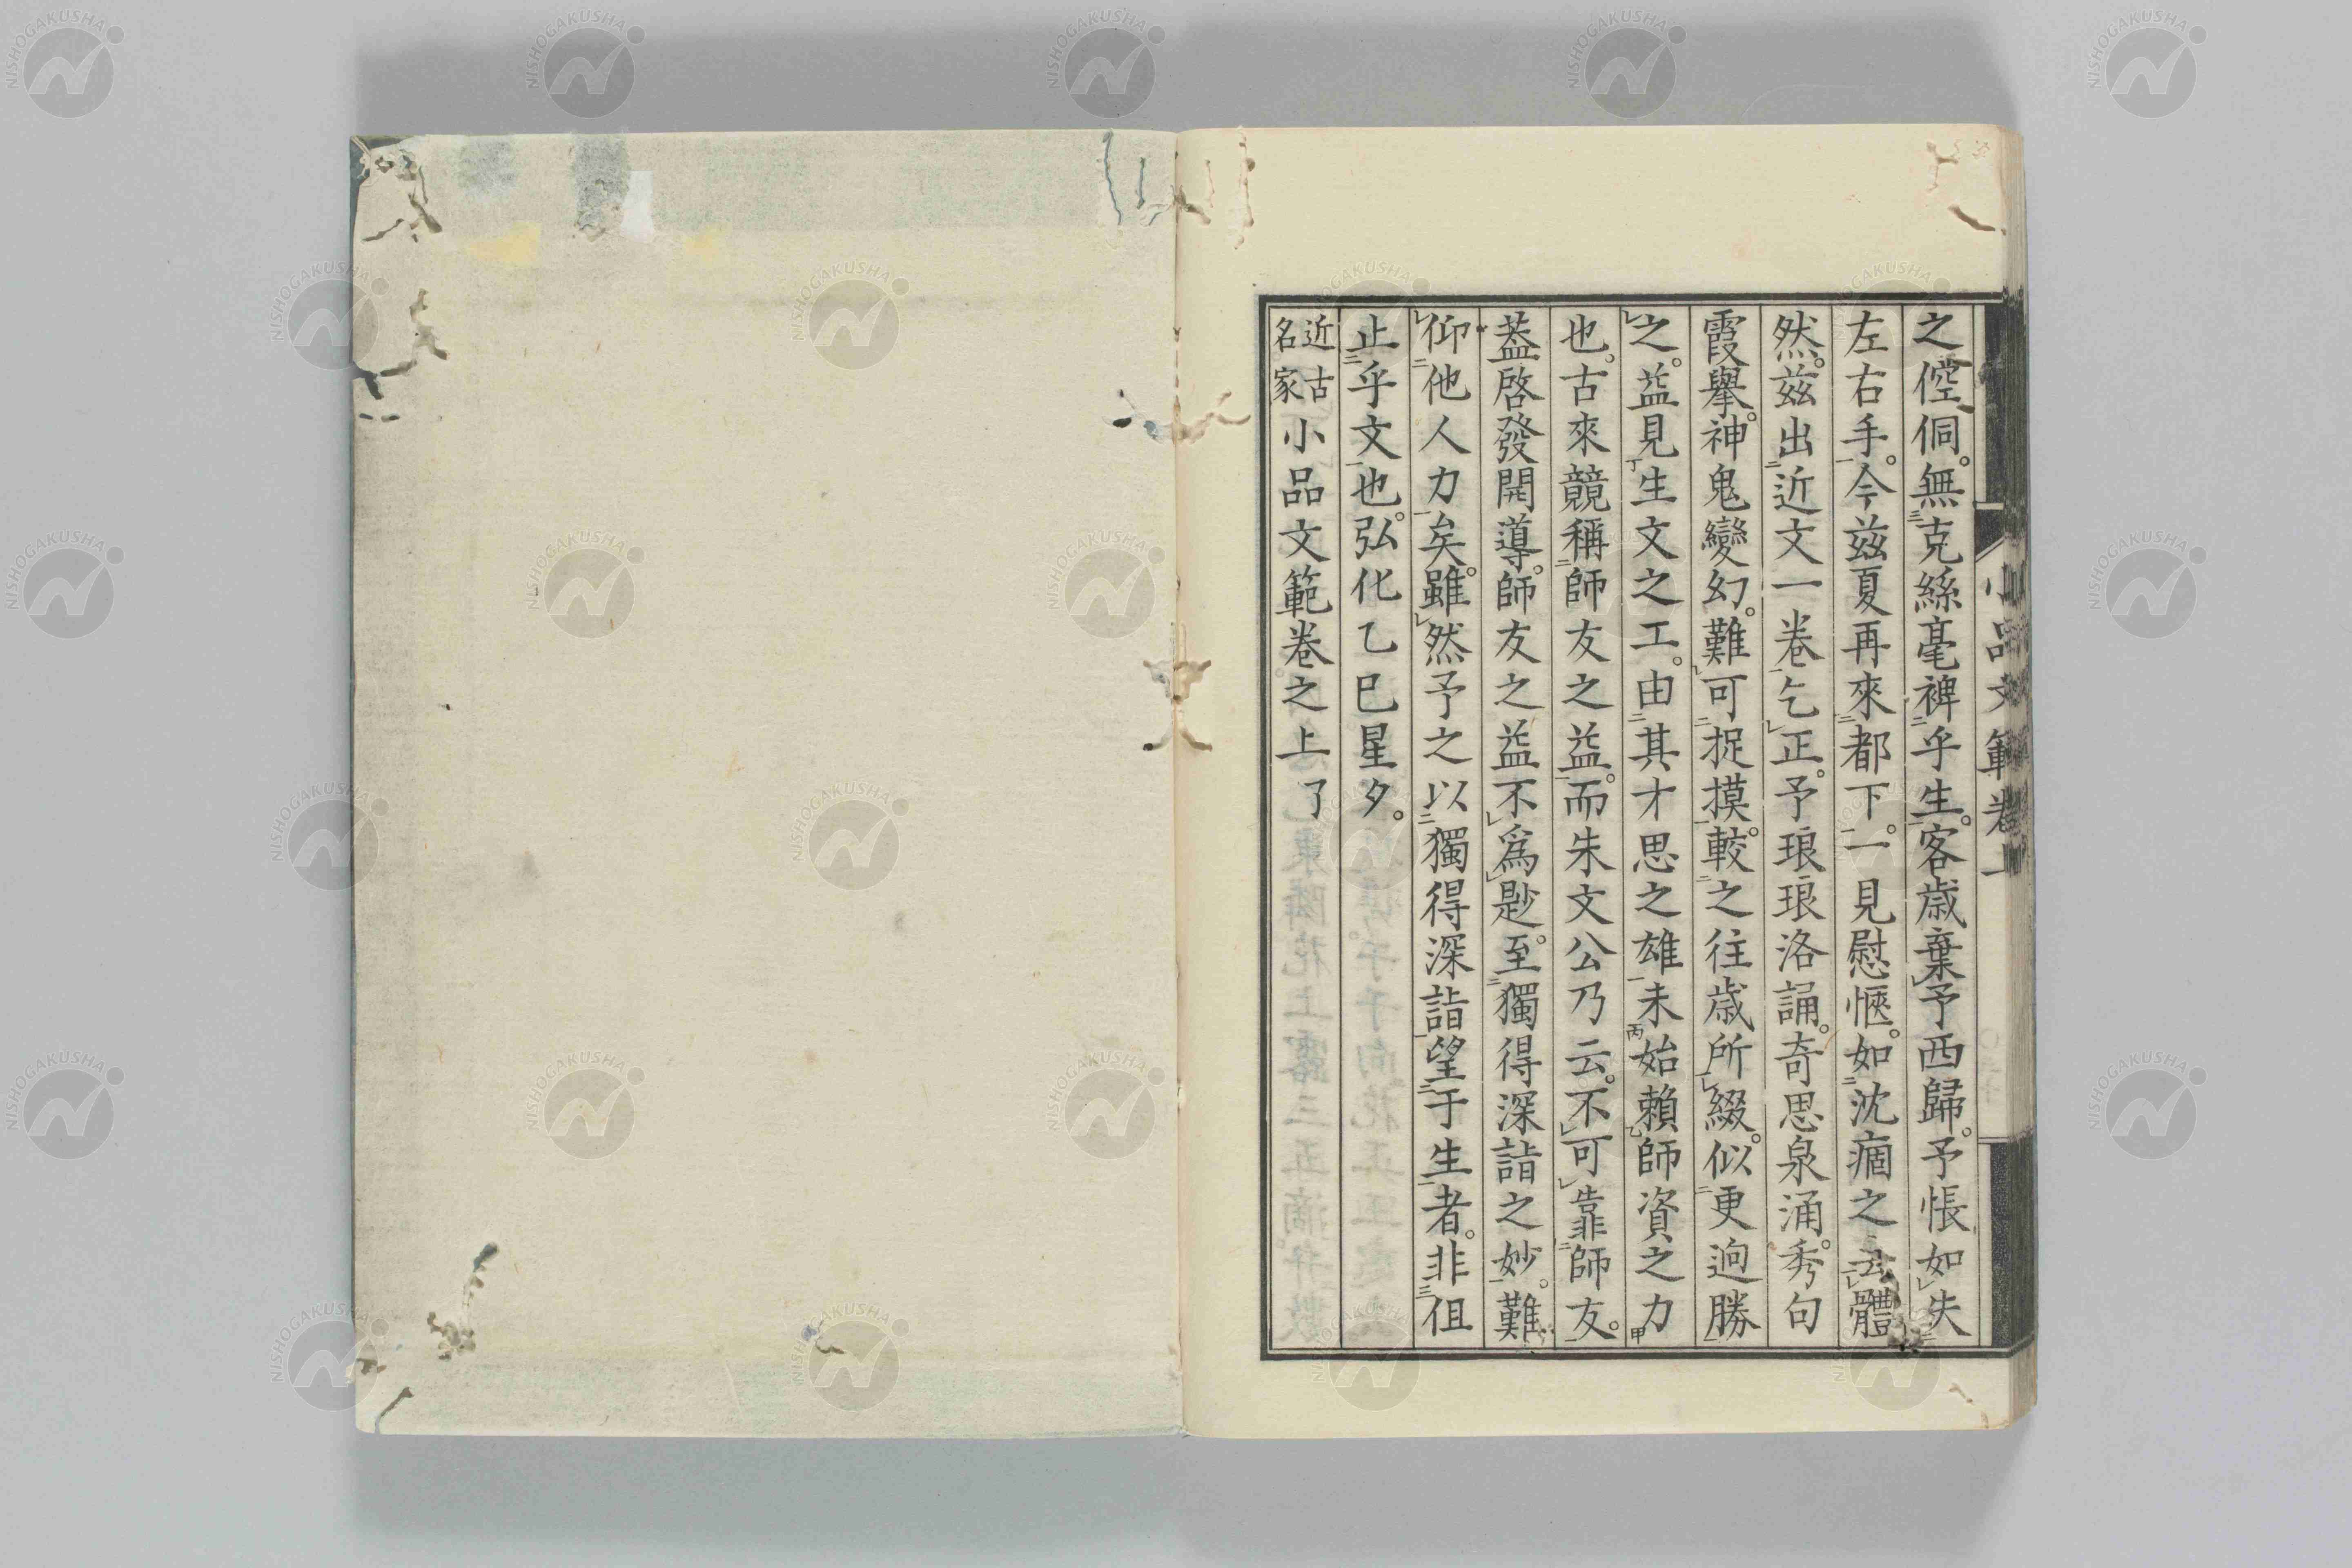 小品文範卷上
之倥侗。無克絲毫裨乎生。客歳棄予西歸。予悵如失
左右手。今兹夏再來都下。一見慰愜。如沈痼之去體
然。兹出近文一卷乞正。予琅琅洛誦。奇思泉涌。秀句
霞擧。神鬼變幻。難可捉摸。較之往歳所綴。似更逈勝
之。益見生文之工。由其才思之雄未始賴師資之力
也。古來競稱師友之益。而朱文公乃云。不可靠師友。
葢啓發開導。師友之益不爲尟。至獨得深詣之妙。難
仰他人力矣。雖然予之以獨得深詣望于生者。非徂
止乎文也。弘化乙巳星夕。
近古名家小品文範卷之上了
NISHOGAKUSHA